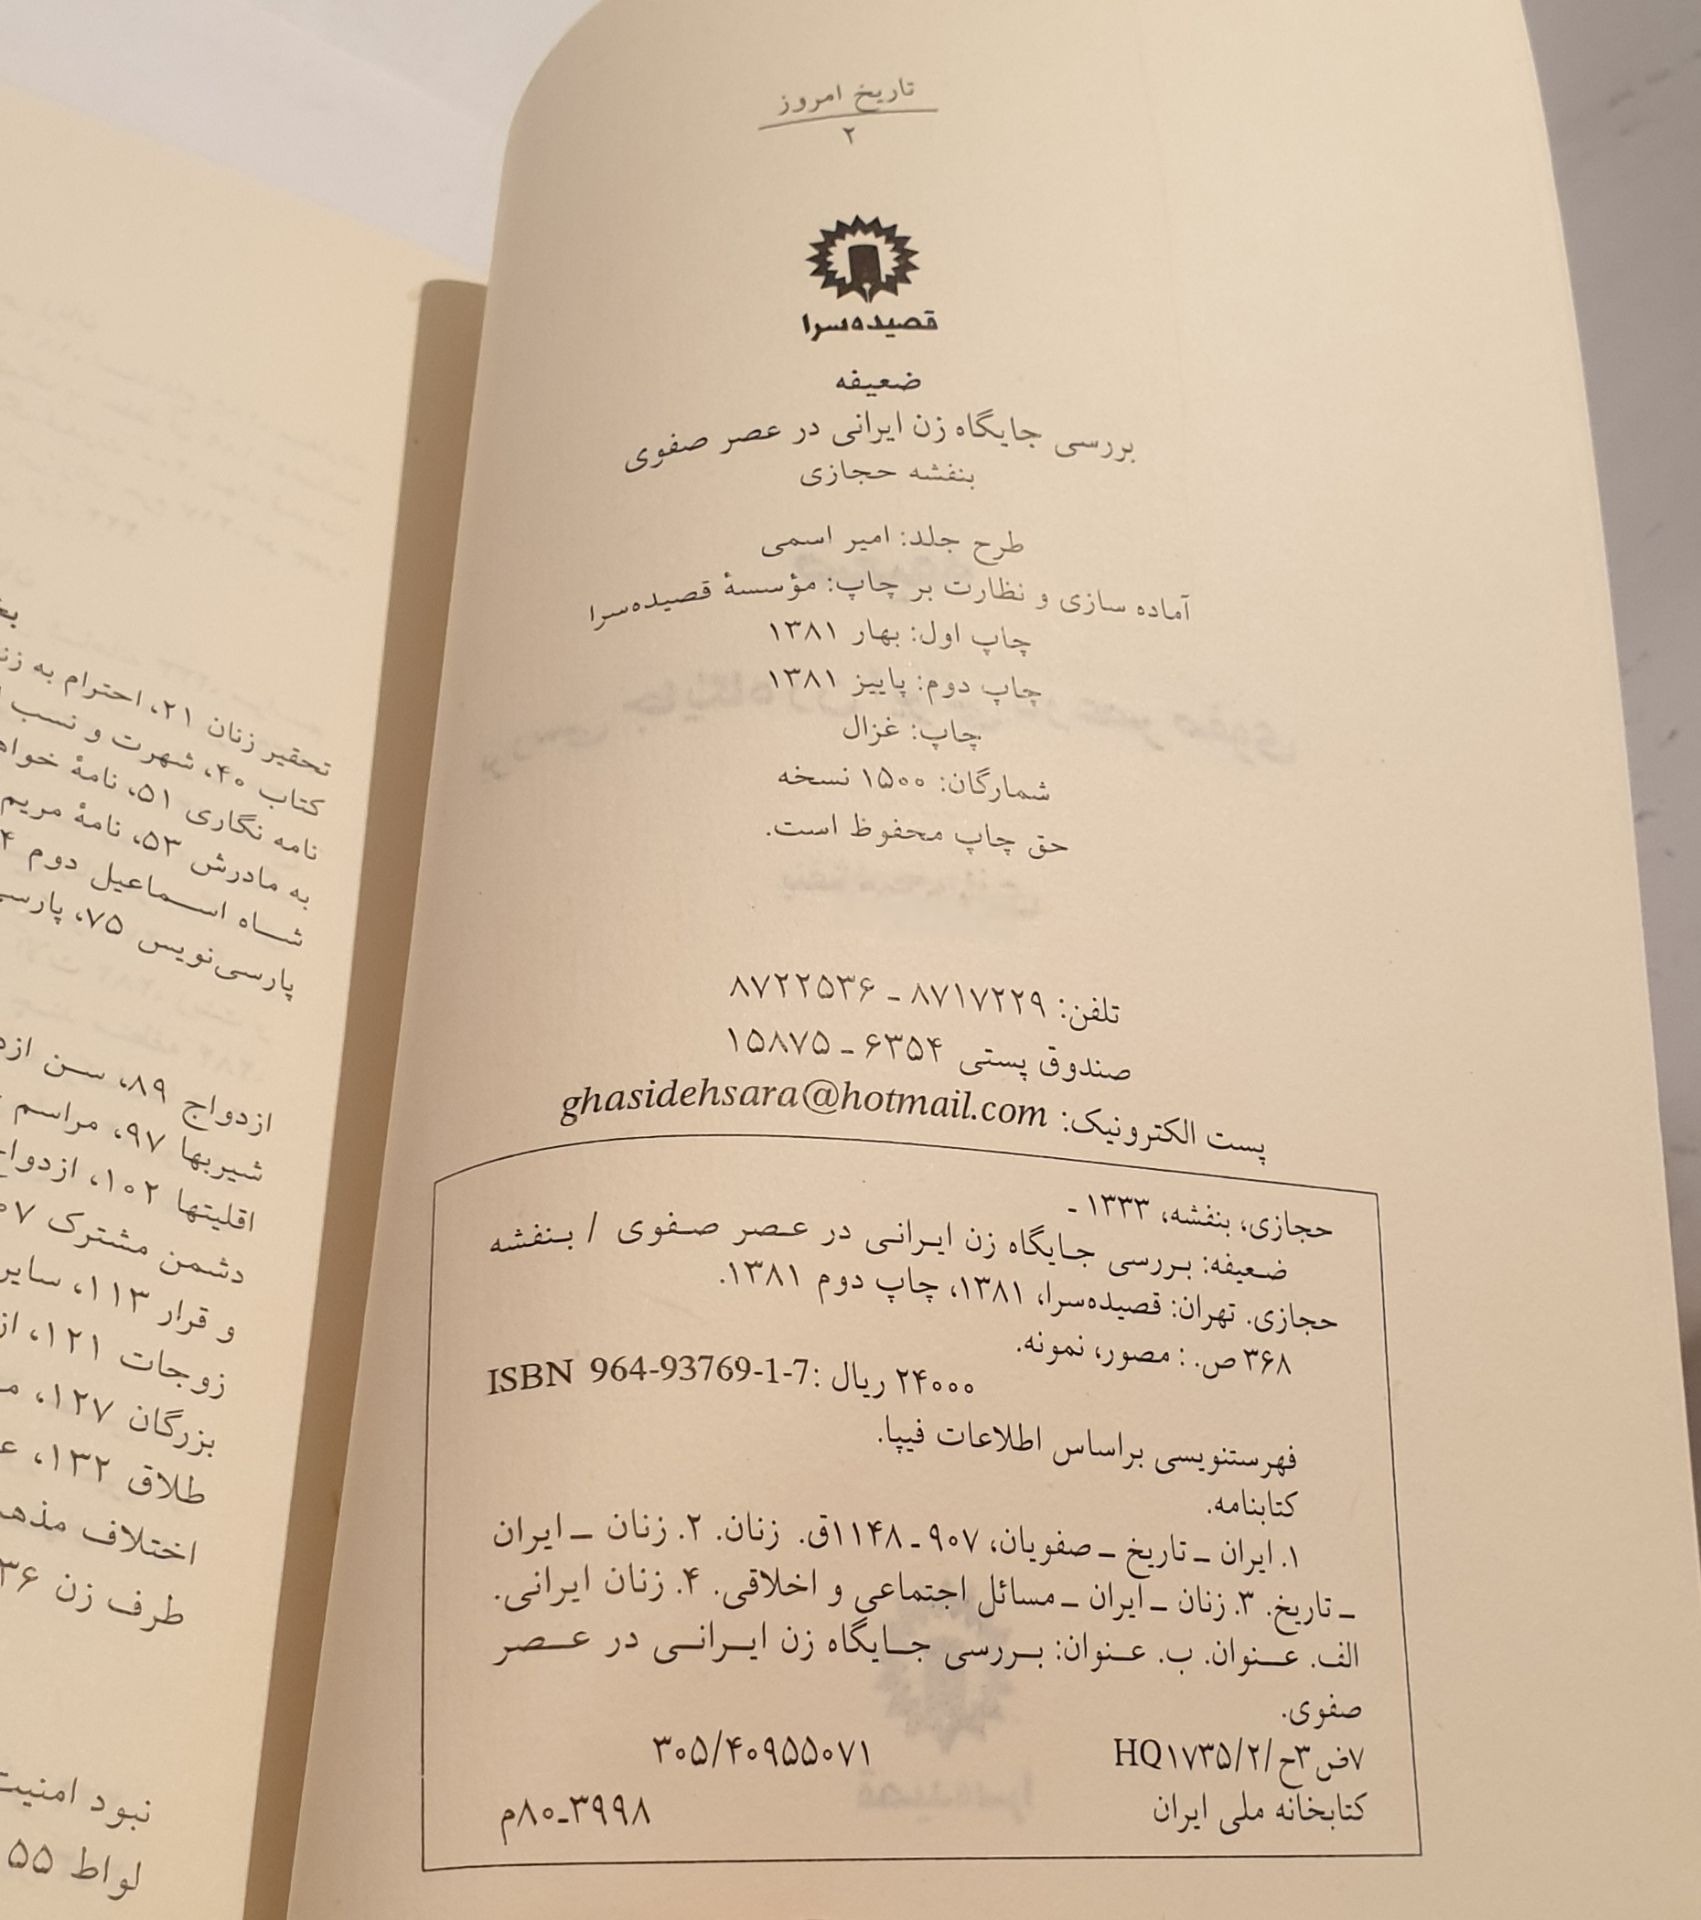 تاریخ امروز
۲
قصیده‌سرا
ضعیفه
بررسی جایگاه زن ایرانی در عصر صفوی
بنفشه حجازی
طرح جلد: امیر اسمی
آماده سازی و نظارت بر چاپ: مؤسسهٔ قصیده‌سرا
چاپ اول: بهار ۱۳۸۱
چاپ دوم: پاییز ۱۳۸۱
چاپ: غزال
شمارگان: ۱۵۰۰ نسخه
حق چاپ محفوظ است.
تلفن: ۸۷۱۷۲۲۹ ـ ۸۷۲۲۵۳۶
صندوق پستی ۶۳۵۴ ـ ۱۵۸۷۵
پست الکترونیک: ghasidehsara@hotmail.com
حجازی، بنفشه، ۱۳۳۳ ـ
ضعیفه: بررسی جایگاه زن ایرانی در عصر صفوی / بنفشه
حجازی. تهران: قصیده‌سرا، ۱۳۸۱، چاپ دوم ۱۳۸۱.
۳۶۸ ص. : مصور، نمونه.
۲۴۰۰۰ ریال :ISBN 964-93769-1-7
فهرستنویسی براساس اطلاعات فیپا.
کتابنامه.
۱. ایران ـ تاریخ ـ صفویان، ۹۰۷ ـ ۱۱۴۸ق. زنان. ۲. زنان ـ ایران
ـ تاریخ. ۳. زنان ـ ایران ـ مسائل اجتماعی و اخلاقی. ۴. زنان ایرانی.
الف. عنوان. ب. عنوان: بررسی جایگاه زن ایرانی در عصر
صفوی.
۷ض۳ح/HQ۱۷۳۵/۲ ۳۰۵/۴۰۹۵۵۰۷۱
کتابخانه ملی ایران ۳۹۹۸ـ۸۰م
تحقیر زنان ۲۱، احترام به
کتاب ۴۰، شهرت و نسب
نامه نگاری ۵۱، نامهٔ
به مادرش ۵۳، نامهٔ مریم
شاه اسماعیل دوم
پارسی‌نویس ۷۵،
ازدواج ۸۹، سن
شیربها ۹۷، مراسم
اقلیتها ۱۰۲،
دشمن مشترک
و قرار ۱۱۳، سایر
زوجات ۱۲۱،
بزرگان ۱۲۷،
طلاق ۱۳۲،
اختلاف
طرف زن
نبود
لواط